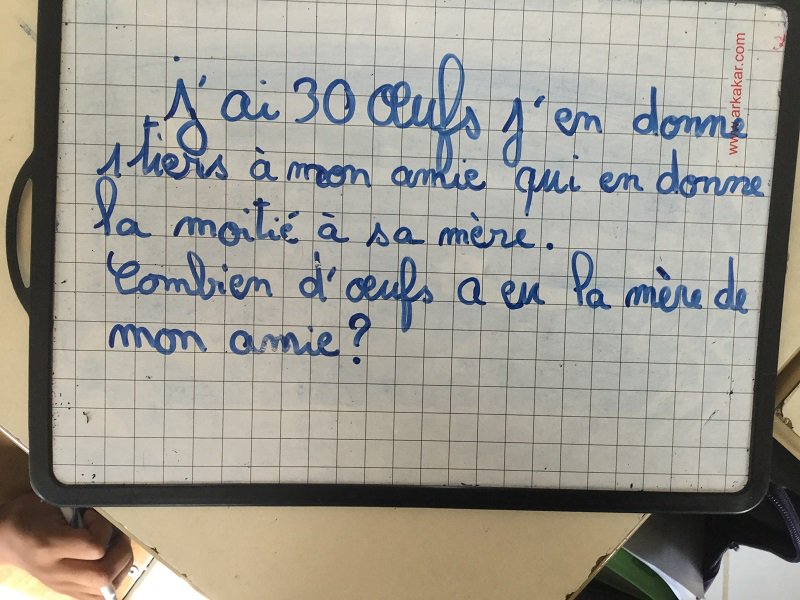 J'ai 30 œufs j'en donne
1 tiers à mon amie qui en donne
la moitié à sa mère.
Combien d'œufs a eu la mère de
mon amie?
www.arkakar.com